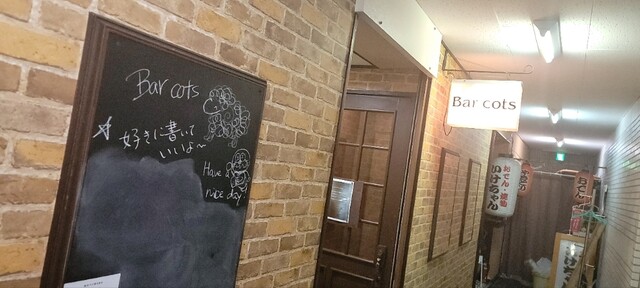 Bar cots
☆ 好きに書いて
いいよ〜
Have a
nice day
Bar cots
おでん・焼鳥
いけちゃん